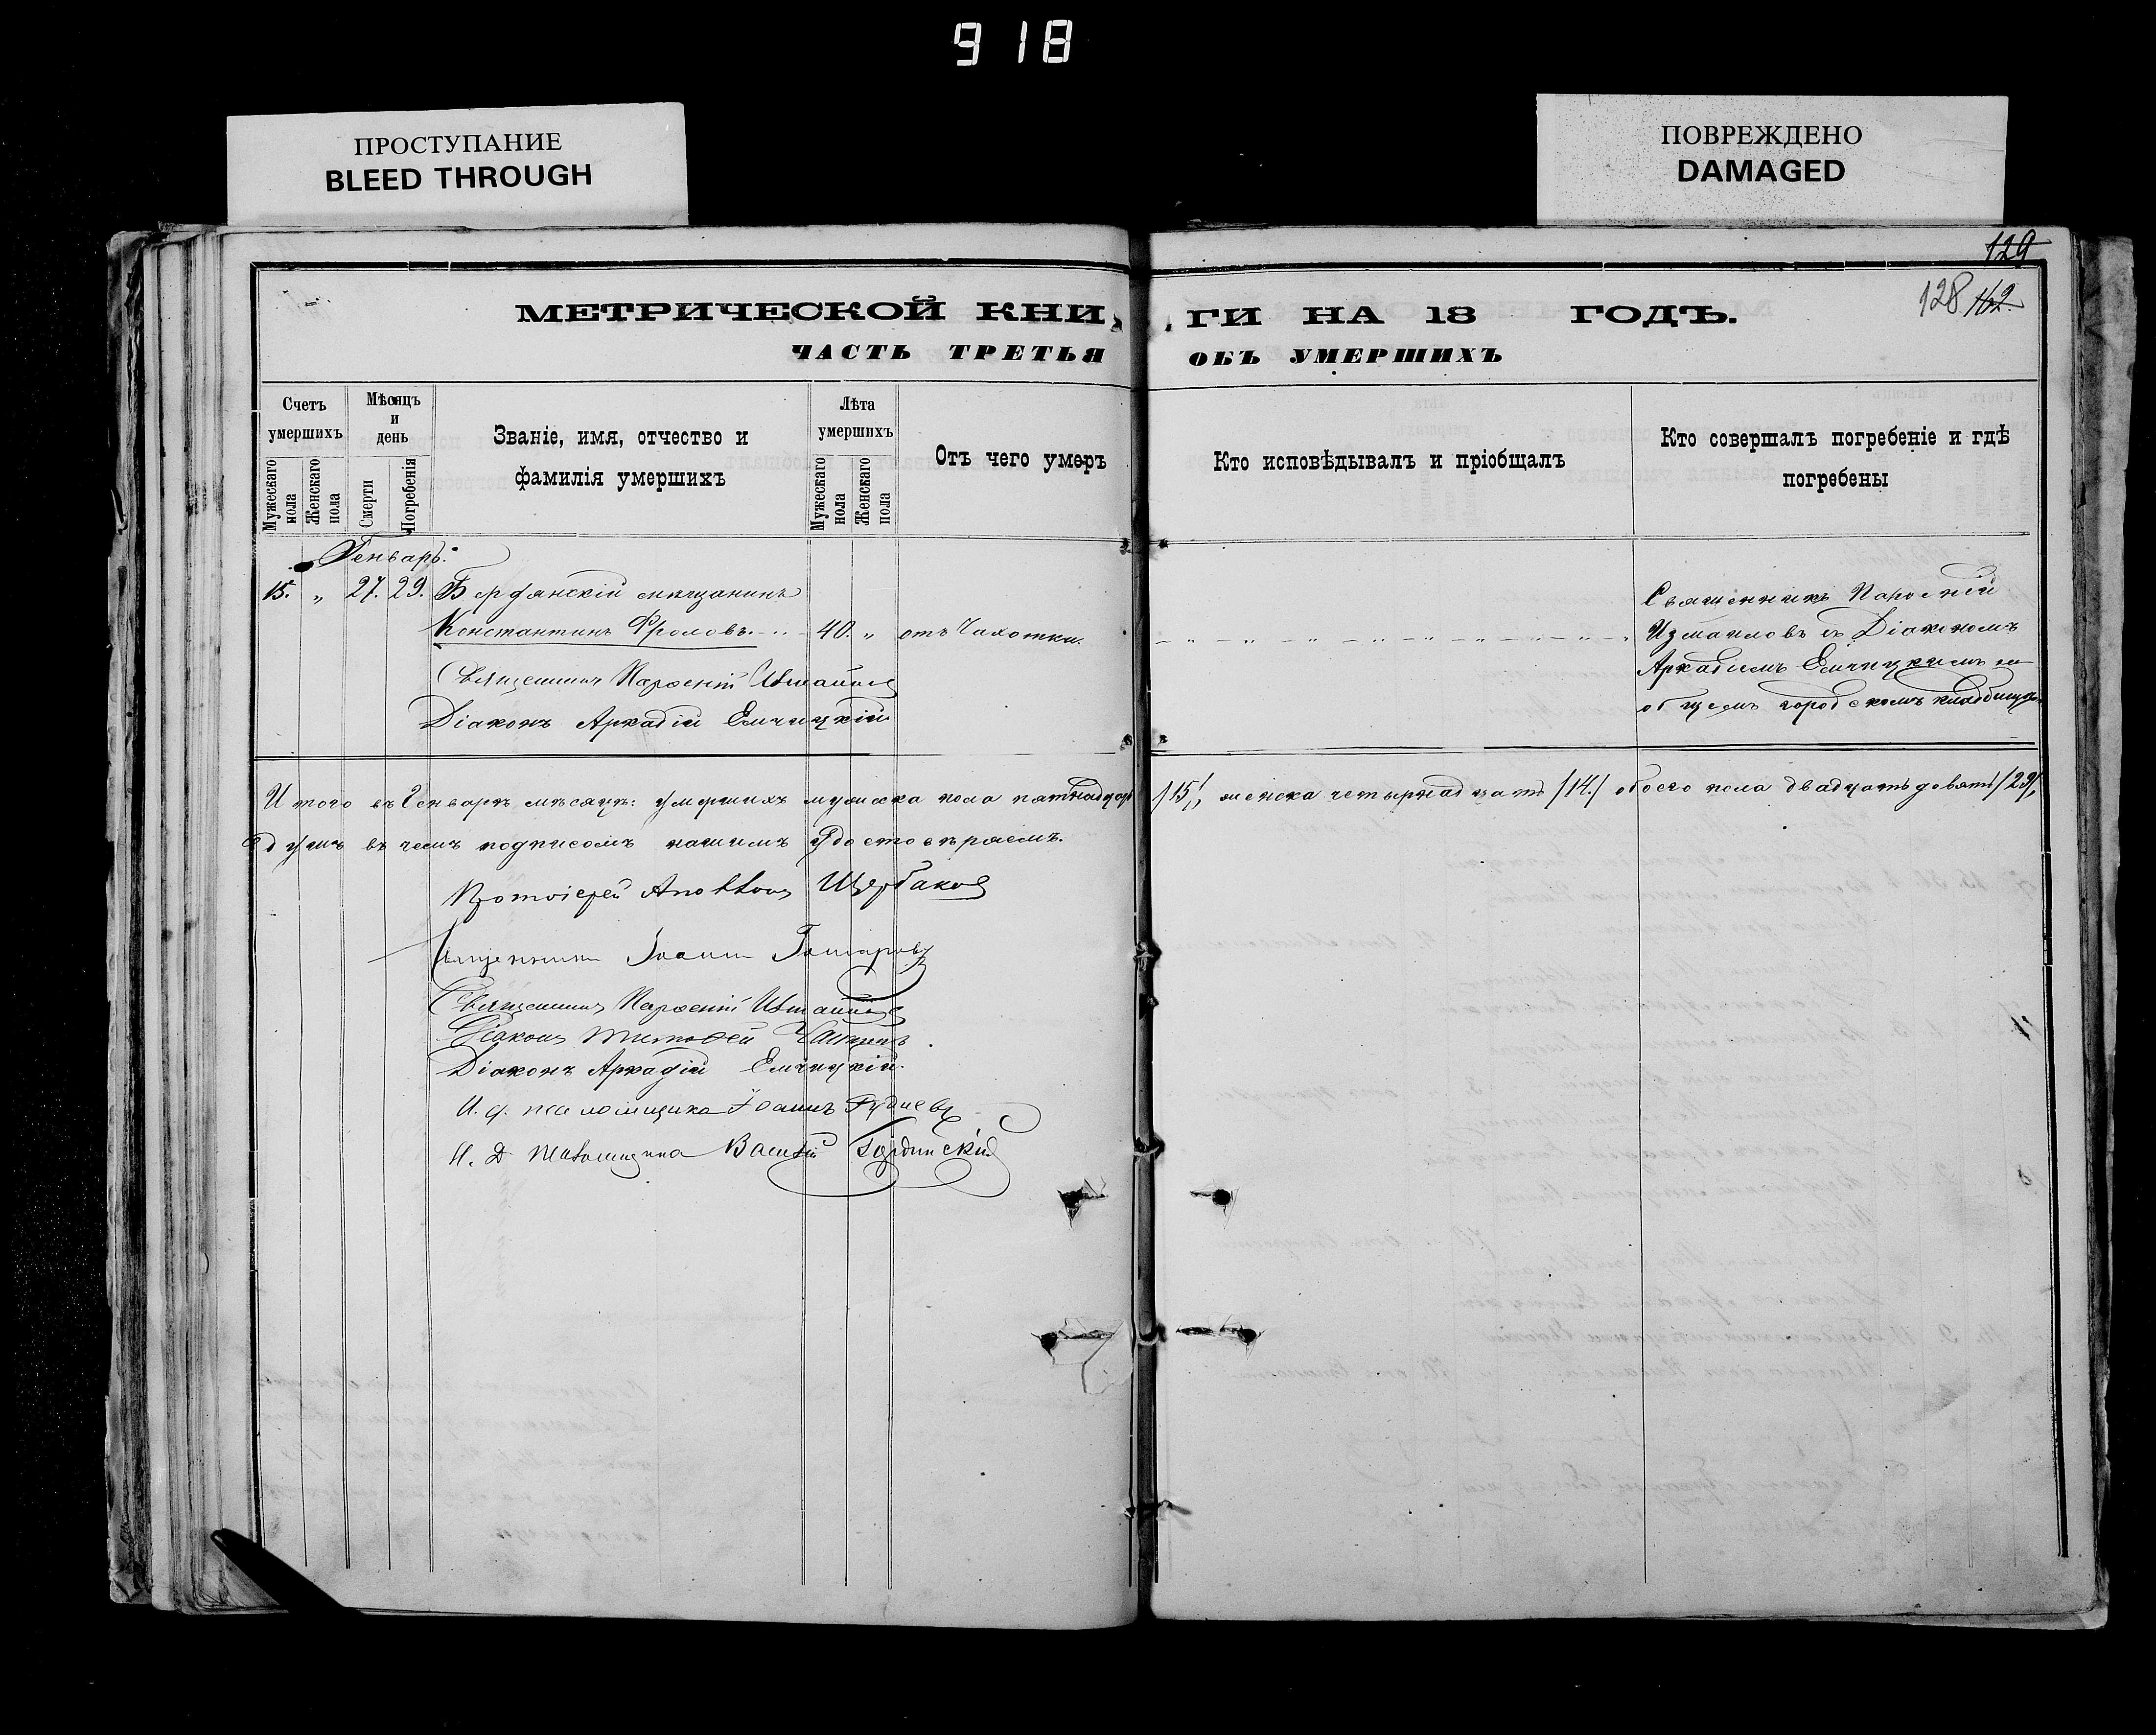 918
ПРОСТУПАНИЕ
BLEED THROUGH
ПОВРЕЖДЕНО
DAMAGED
129
128 162.
МЕТРИЧЕСКОЙ КНИГИ НА 18 ГОДЪ.
ЧАСТЬ ТРЕТЬЯ ОБЪ УМЕРШИХЪ
Счетъ умершихъ
Мужескаго пола
Женскаго пола
Мѣсяцъ и день
Смерти
Погребенія
Званіе, имя, отчество и фамилія умершихъ
Лѣта умершихъ
Мужескаго пола
Женскаго пола
Отъ чего умеръ
Кто исповѣдывалъ и пріобщалъ
Кто совершалъ погребеніе и гдѣ погребены
Генварь.
15. „ 27. 29. Бердянскій мѣщанинъ
Константинъ Фроловъ. 40. „ отъ Чахотки.
Священникъ Парѳеній
Измаиловъ съ Діакономъ
Аркадіемъ Емчицкимъ на
общемъ городскомъ кладбищѣ.
Священникъ Парѳеній Измаиловъ
Діаконъ Аркадій Емчицкій
Итого въ Генварѣ мѣсяцѣ: умершихъ мужеска пола пятнадцать /15/, женска четырнадцать /14./ обоего пола двадцать девять /29/,
душъ въ чемъ подписомъ нашимъ удостовѣряемъ.
Протоіерей Аполлонъ Щербаковъ
Священникъ Іоаннъ
Священникъ Парѳеній Измаиловъ
Діаконъ Тимоѳей
Діаконъ Аркадій Емчицкій.
И. д. псаломщика Іоаннъ Рудневъ
И. Д. Псаломщика Василій